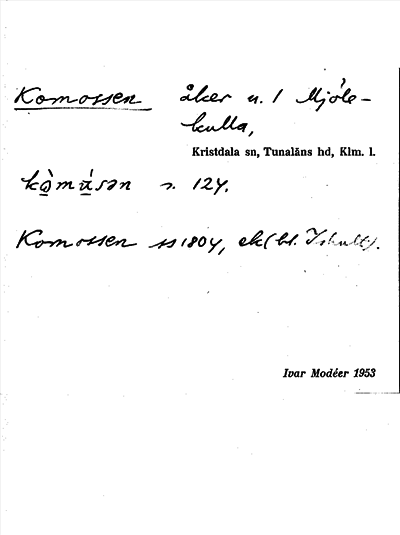 Komossen åker u. 1 Mjöle-
kulla,
Kristdala sn, Tunaläns hd, Klm. l.
kòmásən s. 124.
Komossen ss 1804, ek (bl.
Ivar Modéer 1953